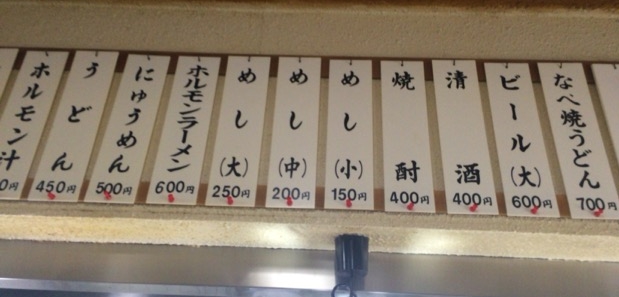 なべ焼うどん
700円
ビール(大)
600円
清酒
400円
焼酎
400円
めし(小)
150円
めし(中)
200円
めし(大)
250円
ホルモンラーメン
600円
にゅうめん
500円
うどん
450円
ホルモン汁
0円